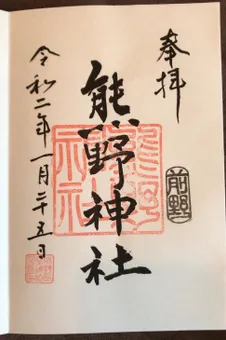 奉拝
前野
熊野神社
熊野神社
令和二年一月二十五日